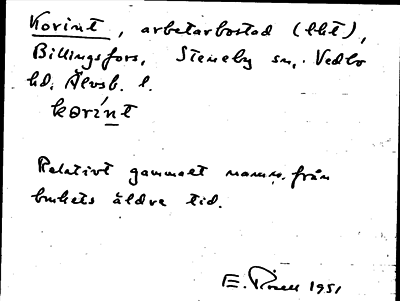 Korint, arbetarbostad (lht),
Billingsfors, Steneby sn, Vedbo
hd, Älvsb. l.
korint
Relativt gammalt namn, från
brukets äldre tid.
E. Rosell 1951